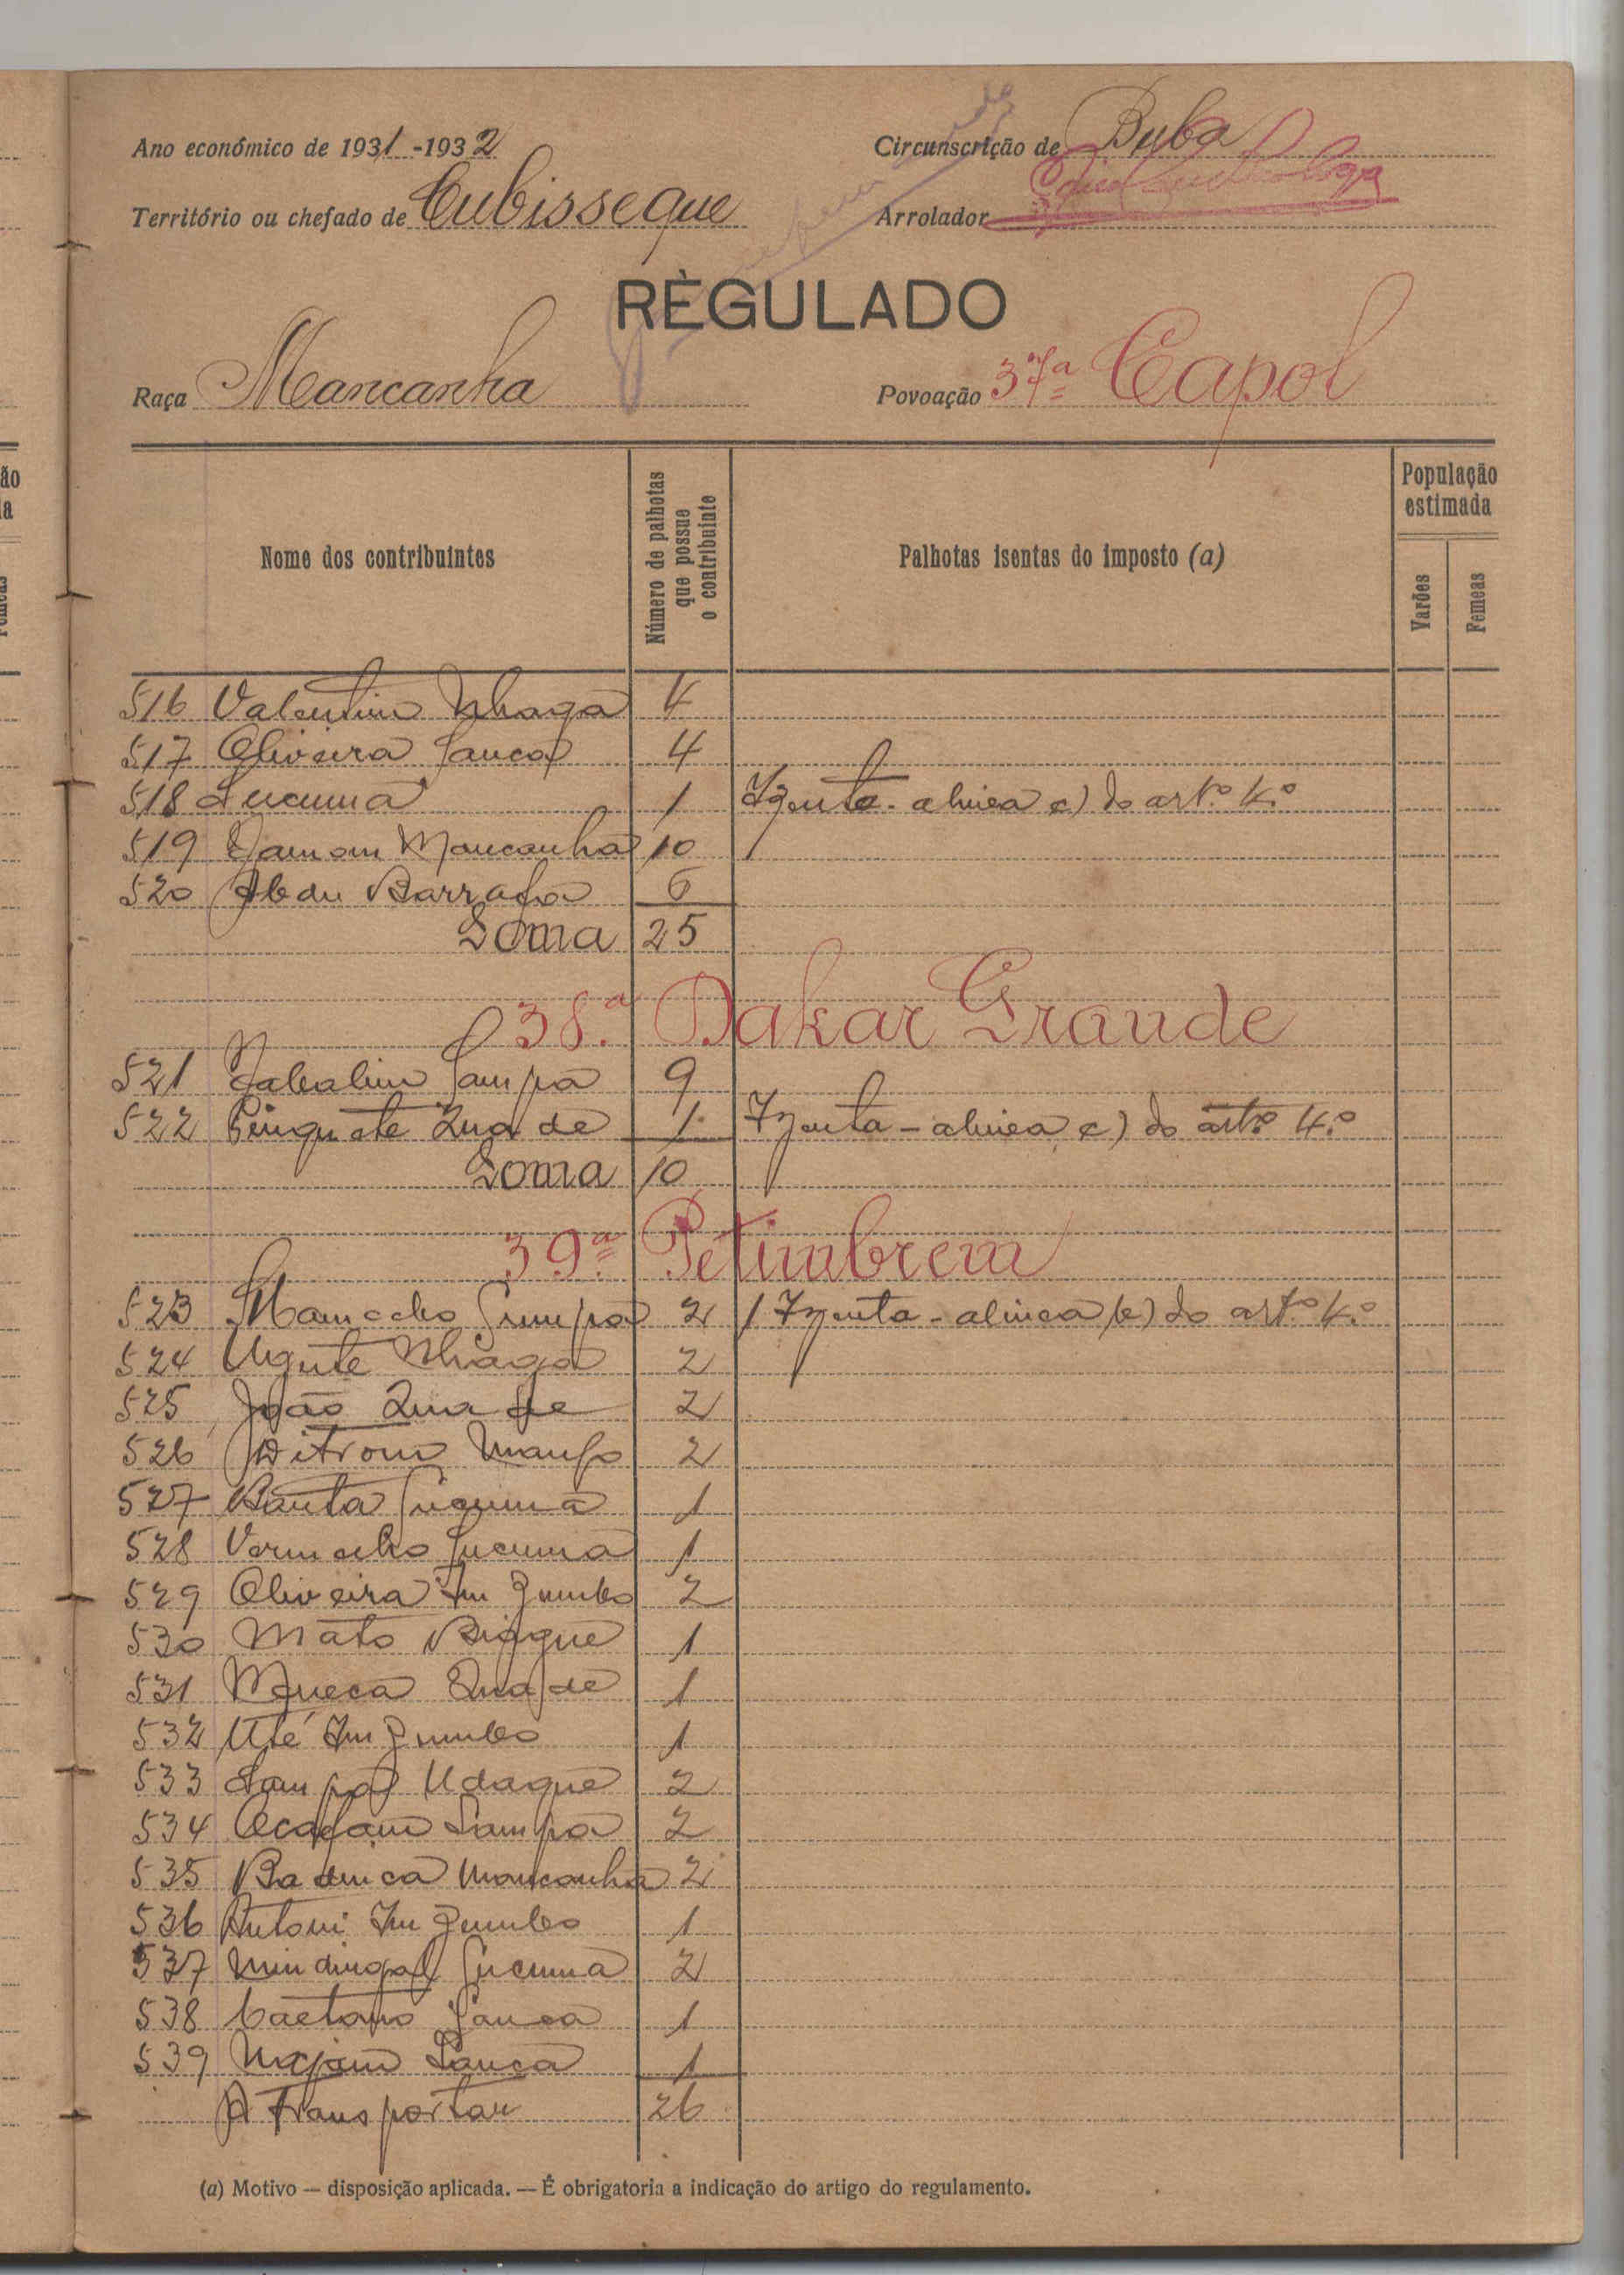 Ano económico de 1931-1932
Circunscrição de Buba
Território ou chefado de Cubisseque
Arrolador
RÈGULADO
Raça Mancanha
Povoação 37ª Capol
Nome dos contribuintes
Número de palhotas que possue o contribuinte
Palhotas isentas do imposto (a)
População estimada
Varões
Femeas
516 Valentim Nhaga 4
517 Oliveira Sanca 4
518 Lucuma 1 Izenta - alinea c) do artº 4.º
519 Damom Mancanha 10
520 6
Soma 25
38.ª Dakar Grande
521 Sampa 9
522 Quade 1 Izenta - alinea c) do artº 4.º
Soma 10
39ª Petimbrem
523 2 1 Izenta - alinea b) do artº 4.º
524 Ugute Nhaga 2
525 João Quade 2
526 2
527 Banta 1
528 Vermelho Lucuma 1
529 Oliveira Im Zumbo 2
530 Mato Biague 1
531 Quade 1
532 Uté Im Zumbo 1
533 Sampa Udaque 2
534 Sampa 2
535 Mancanha 2
536 Antoni Im Zumbo 1
537 Lucuma 2
538 Caetano Sanca 1
539 Sanca 1
A Transportar 26
(a) Motivo — disposição aplicada. — É obrigatoria a indicação do artigo do regulamento.